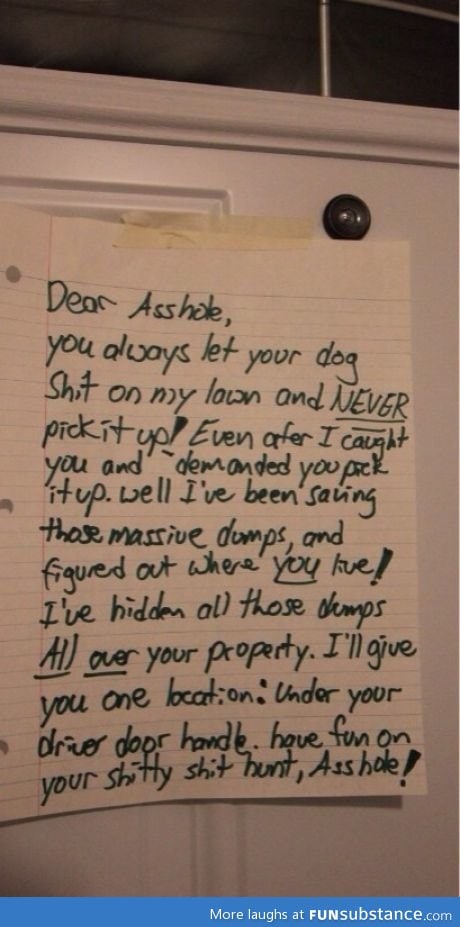 Dear Asshole,
you always let your dog
Shit on my lawn and NEVER
pick it up! Even after I caught
you and demanded you pick
it up. well I've been saving
those massive dumps, and
figured out where you live!
I've hidden all those dumps
All over your property. I'll give
you one location: Under your
driver door handle. have fun on
your shitty shit hunt, Asshole!
More laughs at FUNsubstance.com